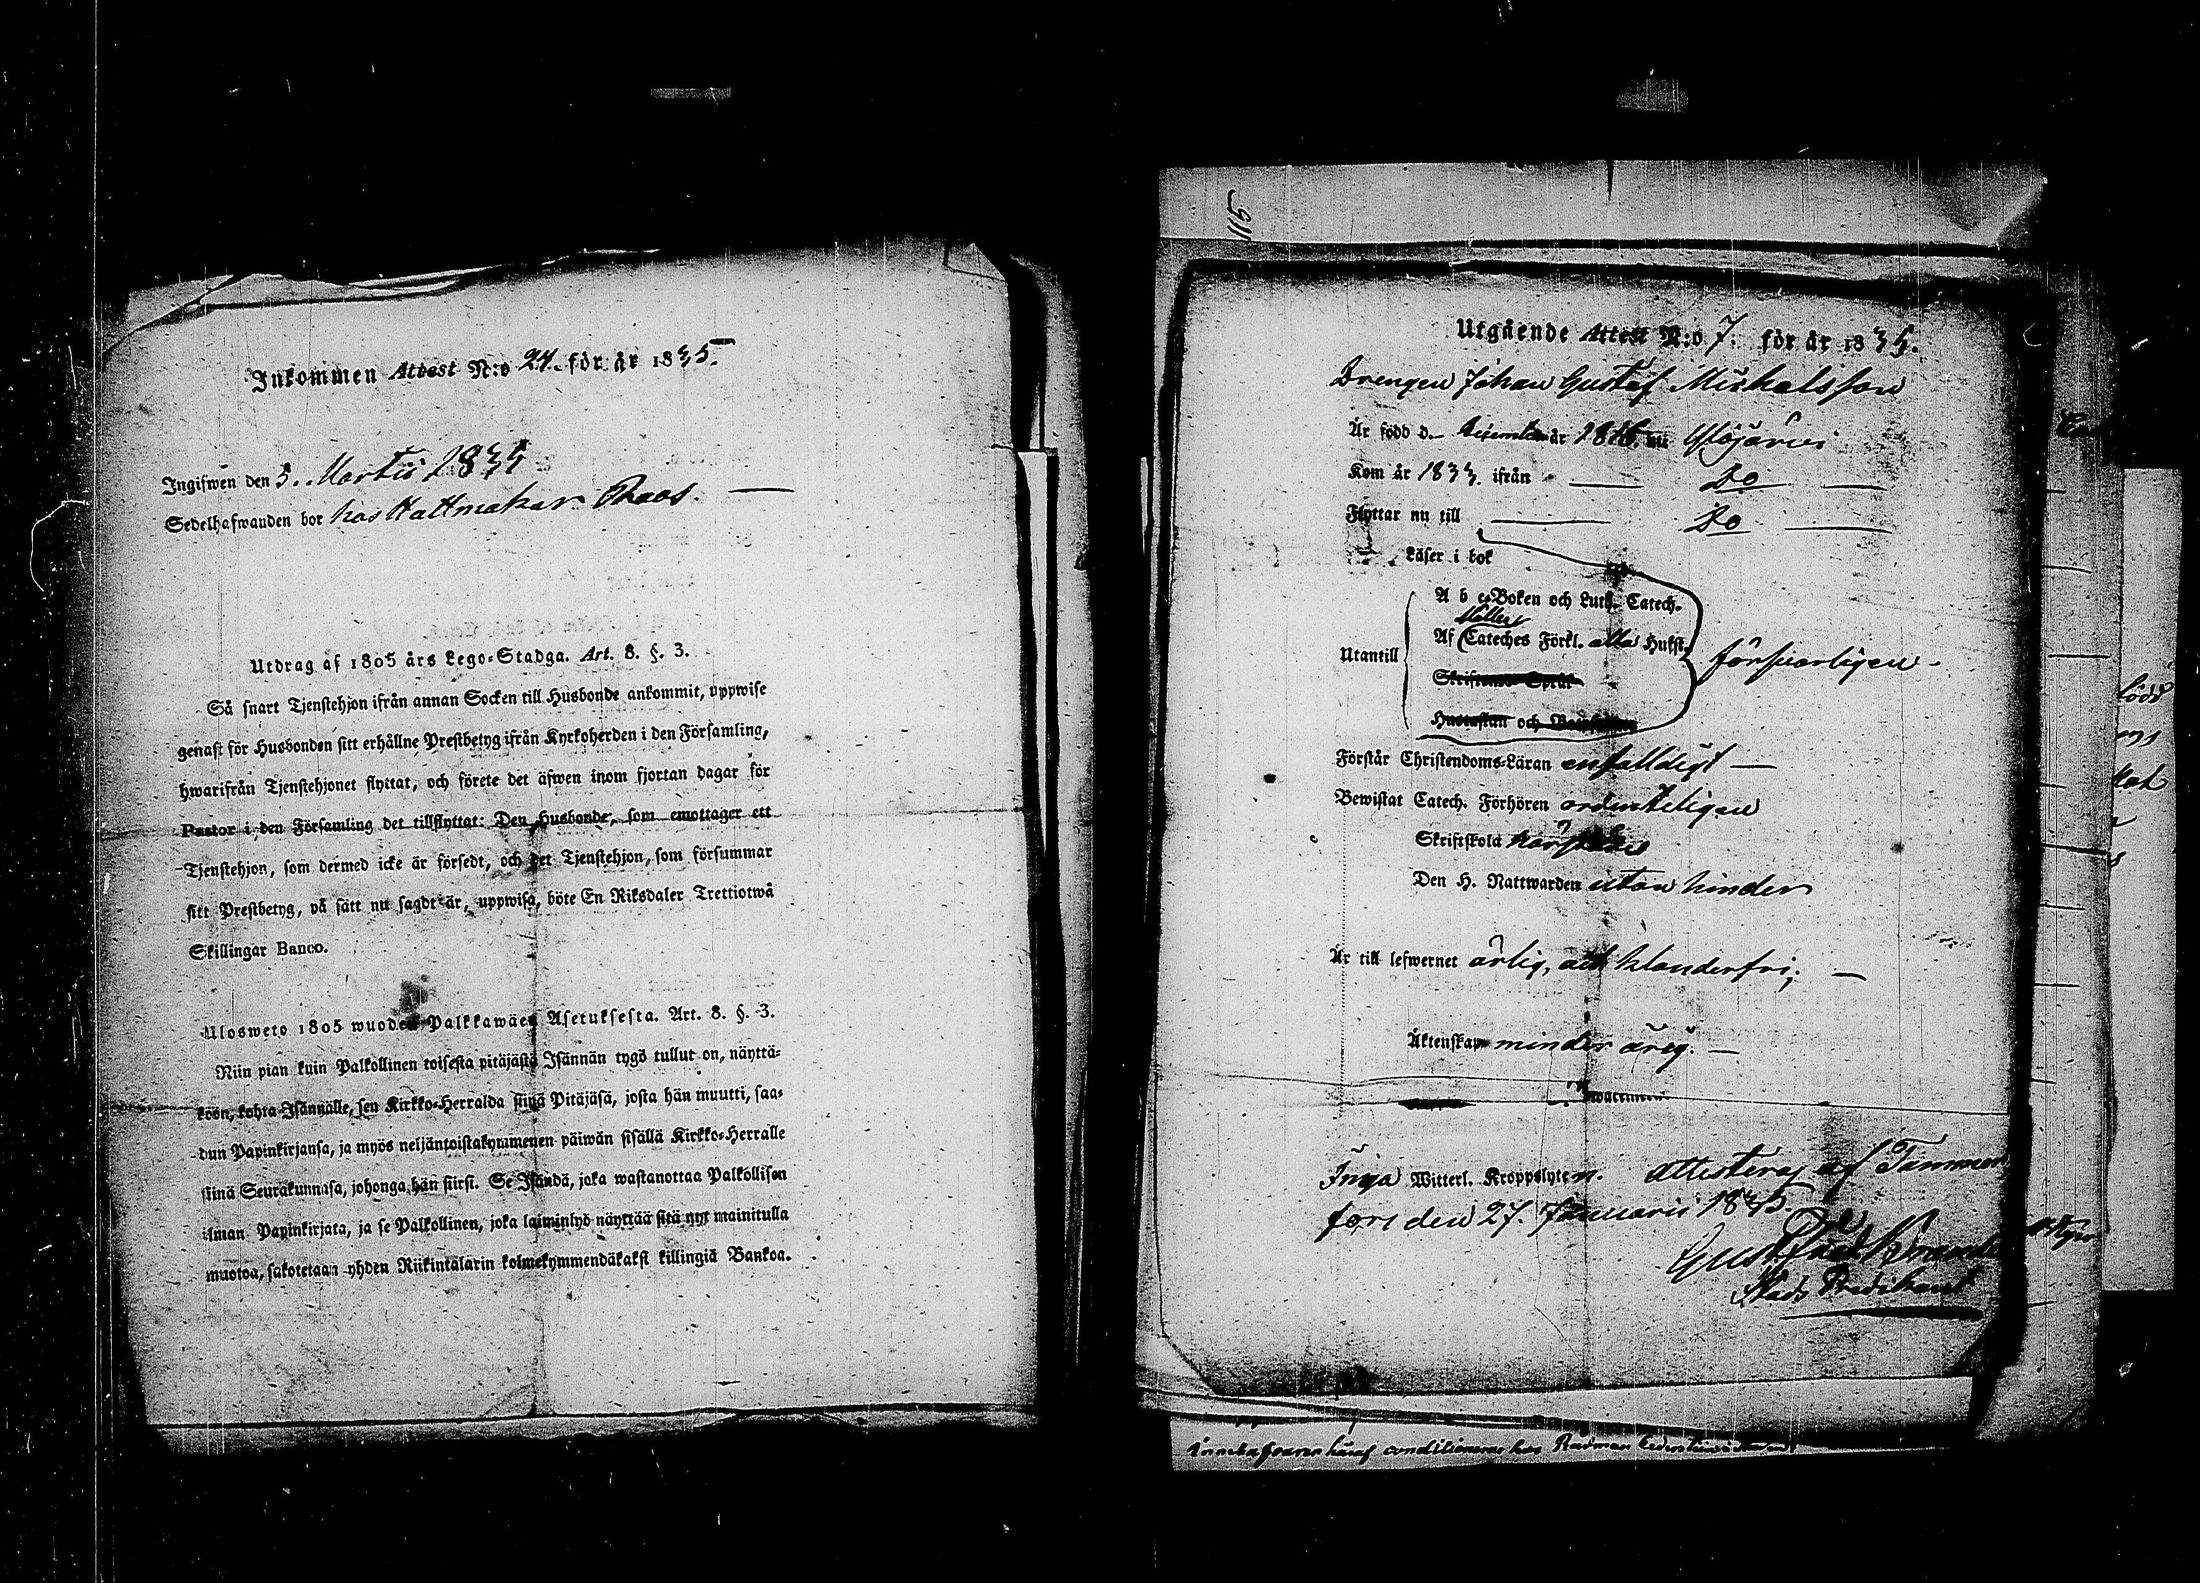 Inkommen Attest N:o 24. för år 1835.
Ingifwen den 5. Martii 1835
Sedelhafwanden bor hos Hattmakar Roos.
Utdrag af 1805 års Lego-Stadga. Art. 8. §. 3.
Så snart Tjenstehjon ifrån annan Socken till Husbonde ankommit, uppwise
genast för Husbonden sitt erhållne Prestbetyg ifrån Kyrkoherden i den Församling,
hwarifrån Tjenstehjonet flyttat, och förete det äfwen inom fjortan dagar för
Pastor i den Församling det tillflyttat: Den Husbonde, som emottager ett
Tjenstehjon, som dermed icke är försedt, och det Tjenstehjon, som försummar
sitt Prestbetyg, på sätt nu sagdt är, uppwisa, böte En Riksdaler Trettiotwå
Skillingar Banco.
Ulosweto 1805 wuoden Palkkawäen Asetuksesta. Art. 8. §. 3.
Niin pian kuin Palkollinen toisesta pitäjästä Isännän tygö tullut on, näyttä-
köön, kohta Isännälle, sen Kirkko-Herralda siinä Pitäjäsä, josta hän muutti, saa-
dun Papinkirjansa, ja myös neljäntoistakymmenen päiwän sisällä Kirkko-Herralle
siinä Seurakunnasa, johonga hän siirsi. Se Isändä, joka wastanottaa Palkollisen
ilman Papinkirjata, ja se Palkollinen, joka laiminlyö näyttää sitä nyt mainitulla
muotoa, sakotetaan yhden Riikintalarin kolmekymmendäkaksi killingiä Bankoa.
115
Utgående Attest N:o 7. för år 1835.
Drengen Johan Gustaf Michelsson
Är född d. December år 1816 uti Ylöjärvi
Kom år 1833. ifrån Do
Flyttar nu till Do
Läser i bok
A b c-Boken och Luth. Catech.
Möllers
Utantill Af Cateches Förkl. alla Hufst. försvarligen
Skriftenes Språk
Hustaflan och
Förstår Christendoms-Läran enfalldigt
Bewistat Catech. Förhören ordenteligen
Skriftskola härstädes
Den H. Nattwarden utan hinder
Är till lefwernet ärlig, och klanderfri;
Äktenskap minder årig.
Inga Witterl. Kroppslyten. Attesteras af Tammer
fors den 27. Januarii 1835.
Gust. Fred.
Stads Predikant
conditionerar hos Rådman